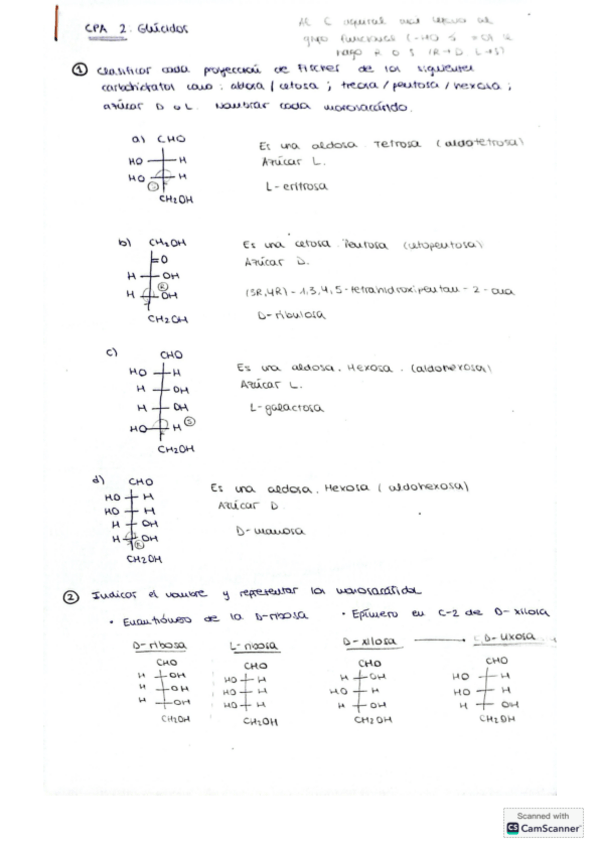 CPA 2: Glúcidos
Al C
grupo funcional (-HO
hago R o S (R→D L→S)
① Clasificar cada proyección de Fischer de los siguientes
carbohidratos como: aldosa / cetosa ; treosa / pentosa / hexosa ;
azúcar D o L. Nombrar cada monosacárido.
a) CHO
HO H
HO H
S
CH2OH
Es una aldosa. Tetrosa (aldotetrosa)
Azúcar L.
L-eritrosa
b) CH2OH
=O
H OH
R
H OH
CH2OH
Es una cetosa. Pentosa (cetopentosa)
Azúcar D.
(3R,4R)-1,3,4,5-tetrahidroxipentan-2-ona
D-ribulosa
c) CHO
HO H
H OH
H OH
HO H S
CH2OH
Es una aldosa. Hexosa. (aldohexosa)
Azúcar L.
L-galactosa
d) CHO
HO H
HO H
H OH
H OH
R
CH2OH
Es una aldosa. Hexosa (aldohexosa)
Azúcar D
D-manosa
② Indicar el nombre y representar los monosacáridos
• Enantiómero de la D-ribosa • Epímero en C-2 de D-xilosa
D-ribosa L-ribosa D-xilosa → D-lixosa
CHO CHO CHO CHO
H OH HO H H OH HO H
H OH HO H HO H HO H
H OH HO H H OH H OH
CH2OH CH2OH CH2OH CH2OH
Scanned with
CS CamScanner